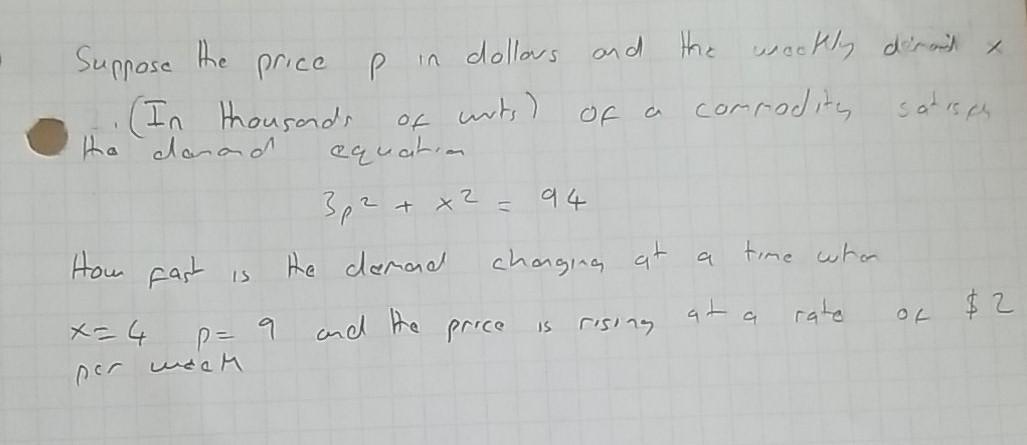 Suppose the price p in dollars and the weekly demand x
(In thousands of units) of a commodity satisfy
the demand equation
3p² + x² = 94
How fast is the demand changing at a time when
x = 4 p = 9 and the price is rising at a rate of $2
per week